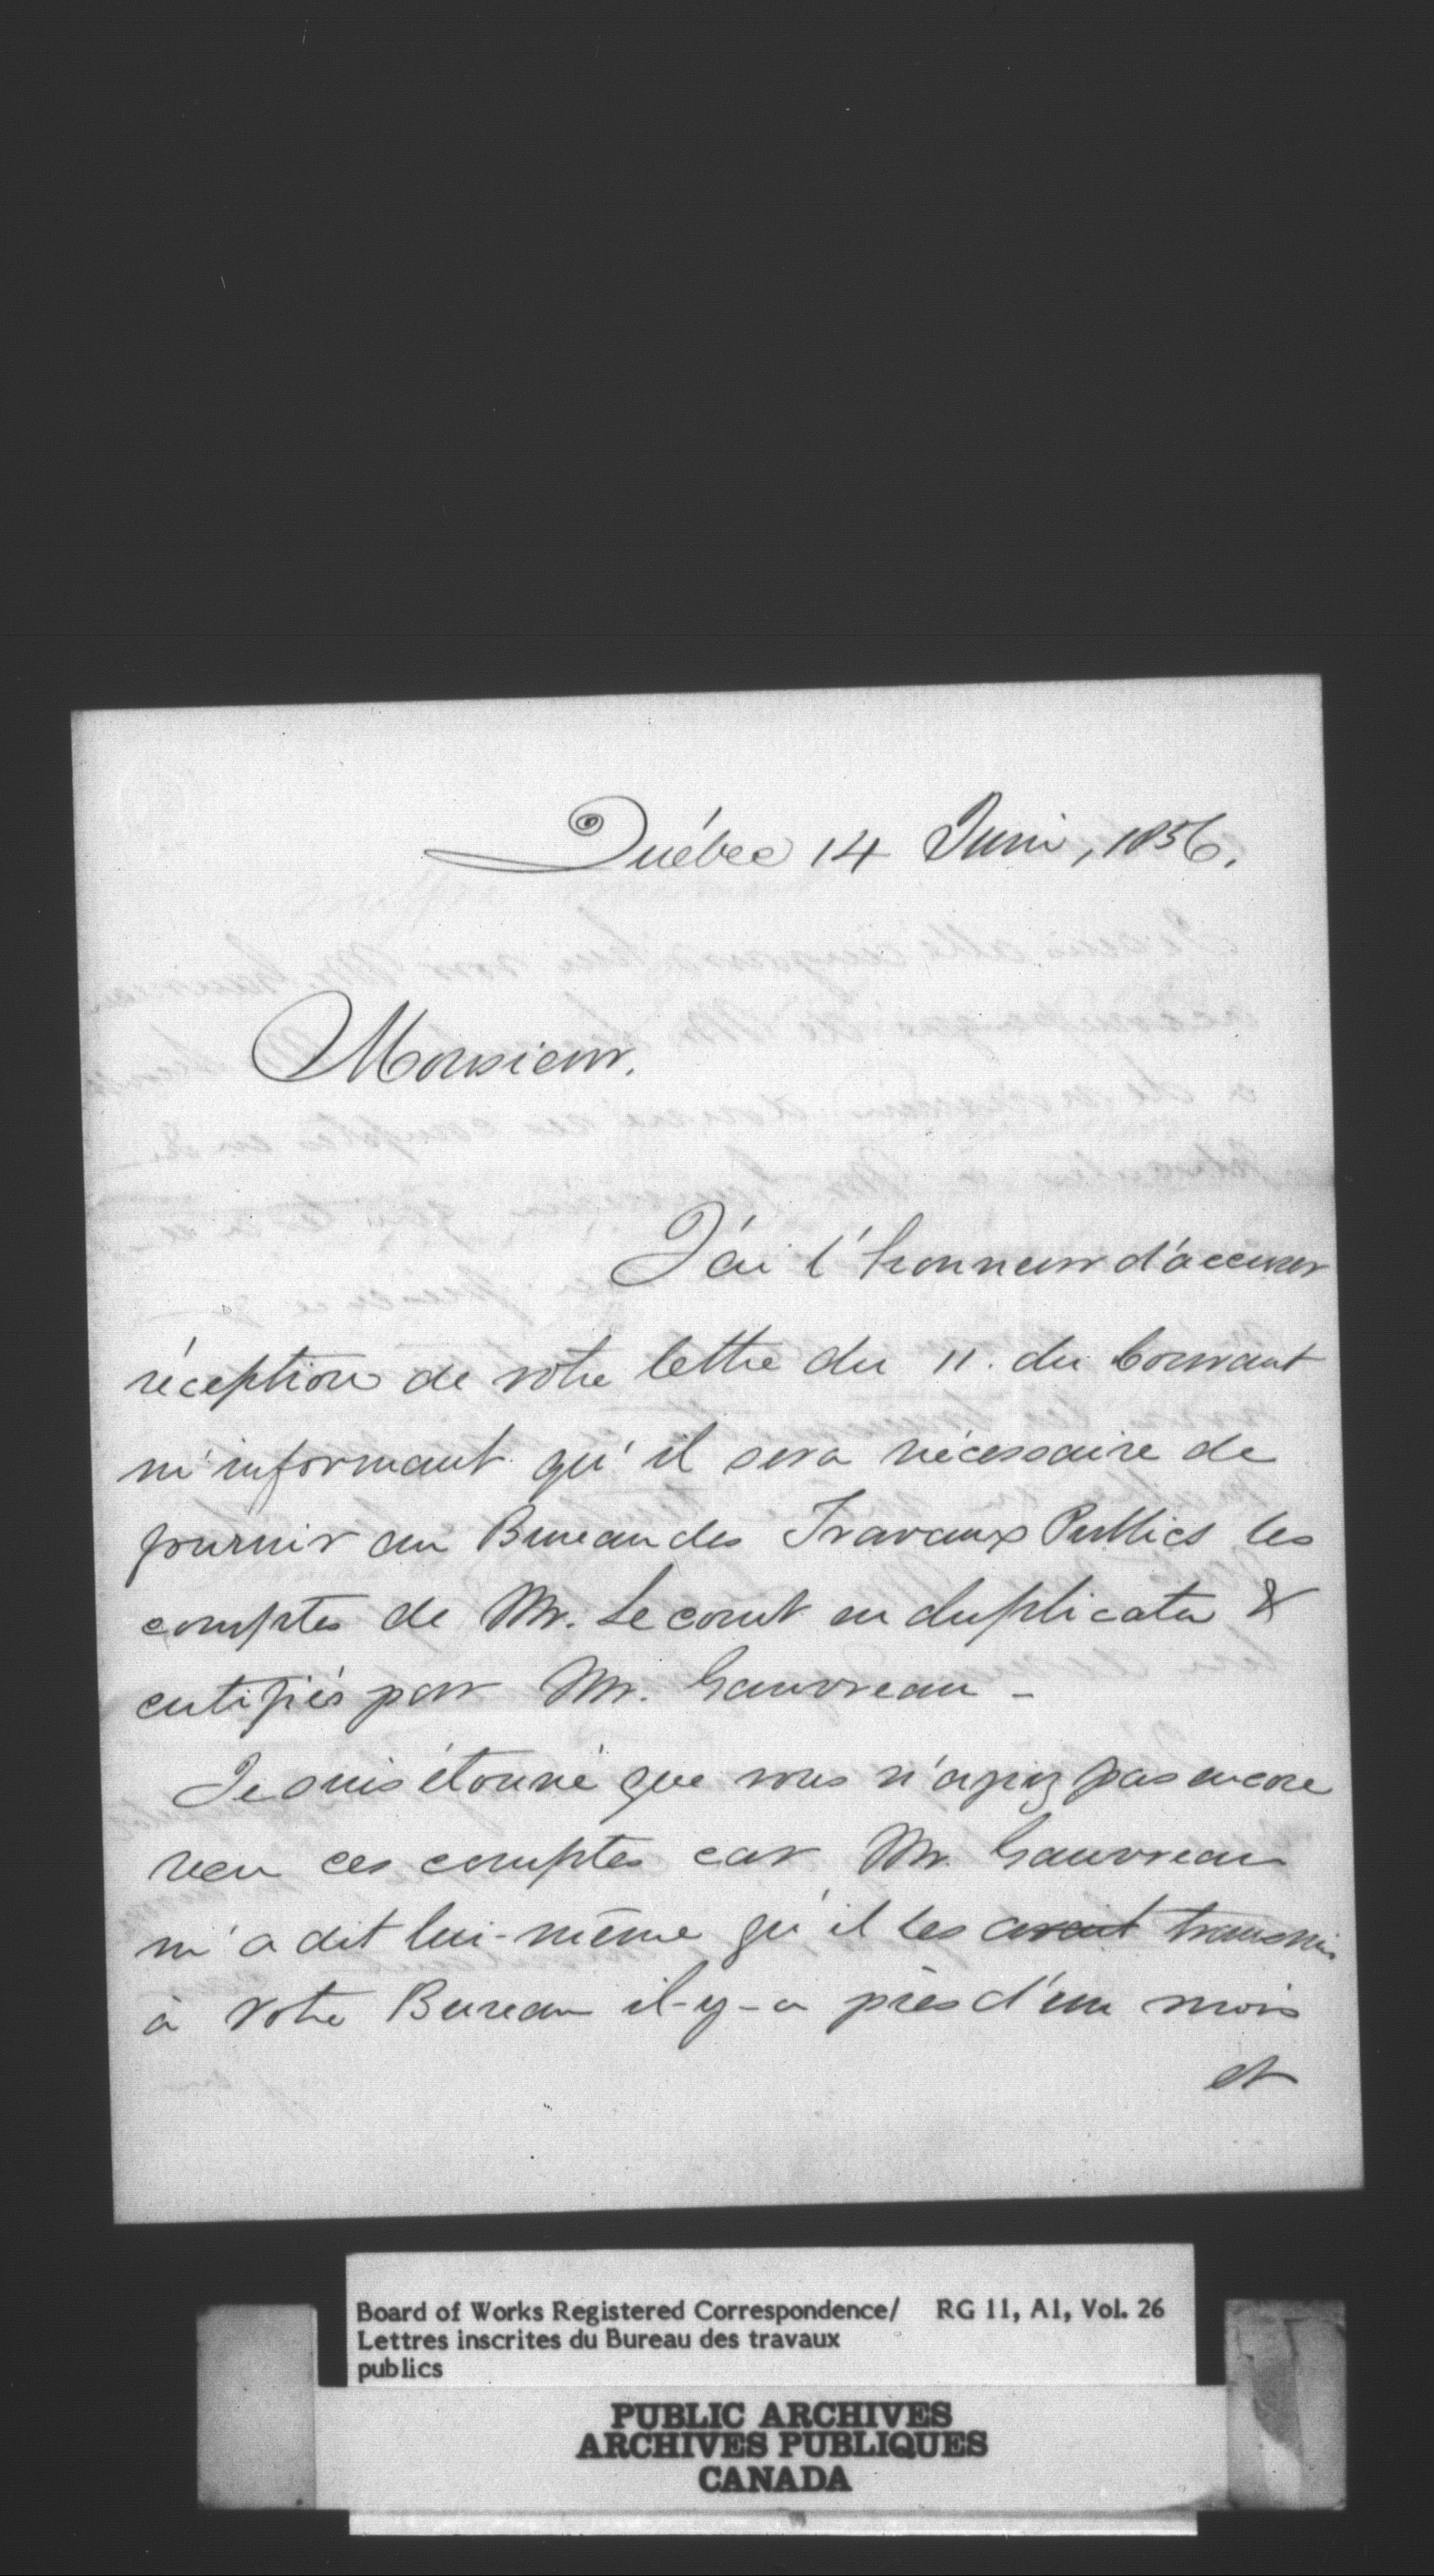 Québec 14 Juin, 1856.
Monsieur.
J'ai l'honneur d'accuser
réception de votre lettre du 11. du Courant
m'informant qu'il sera nécessaire de
fournir au Bureau des Travaux Publics les
comptes de Mr. Lecourt en duplicata &
certifiés par Mr. Gauvreau -
Je suis étonné que vous n'ayiez pas encore
reçu ces comptes car Mr. Gauvreau
m'a dit lui-même qu'il les avait transmis
à votre Bureau il-y-a près d'un mois
et
Board of Works Registered Correspondence/ RG 11, A1, Vol. 26
Lettres inscrites du Bureau des travaux
publics
PUBLIC ARCHIVES
ARCHIVES PUBLIQUES
CANADA